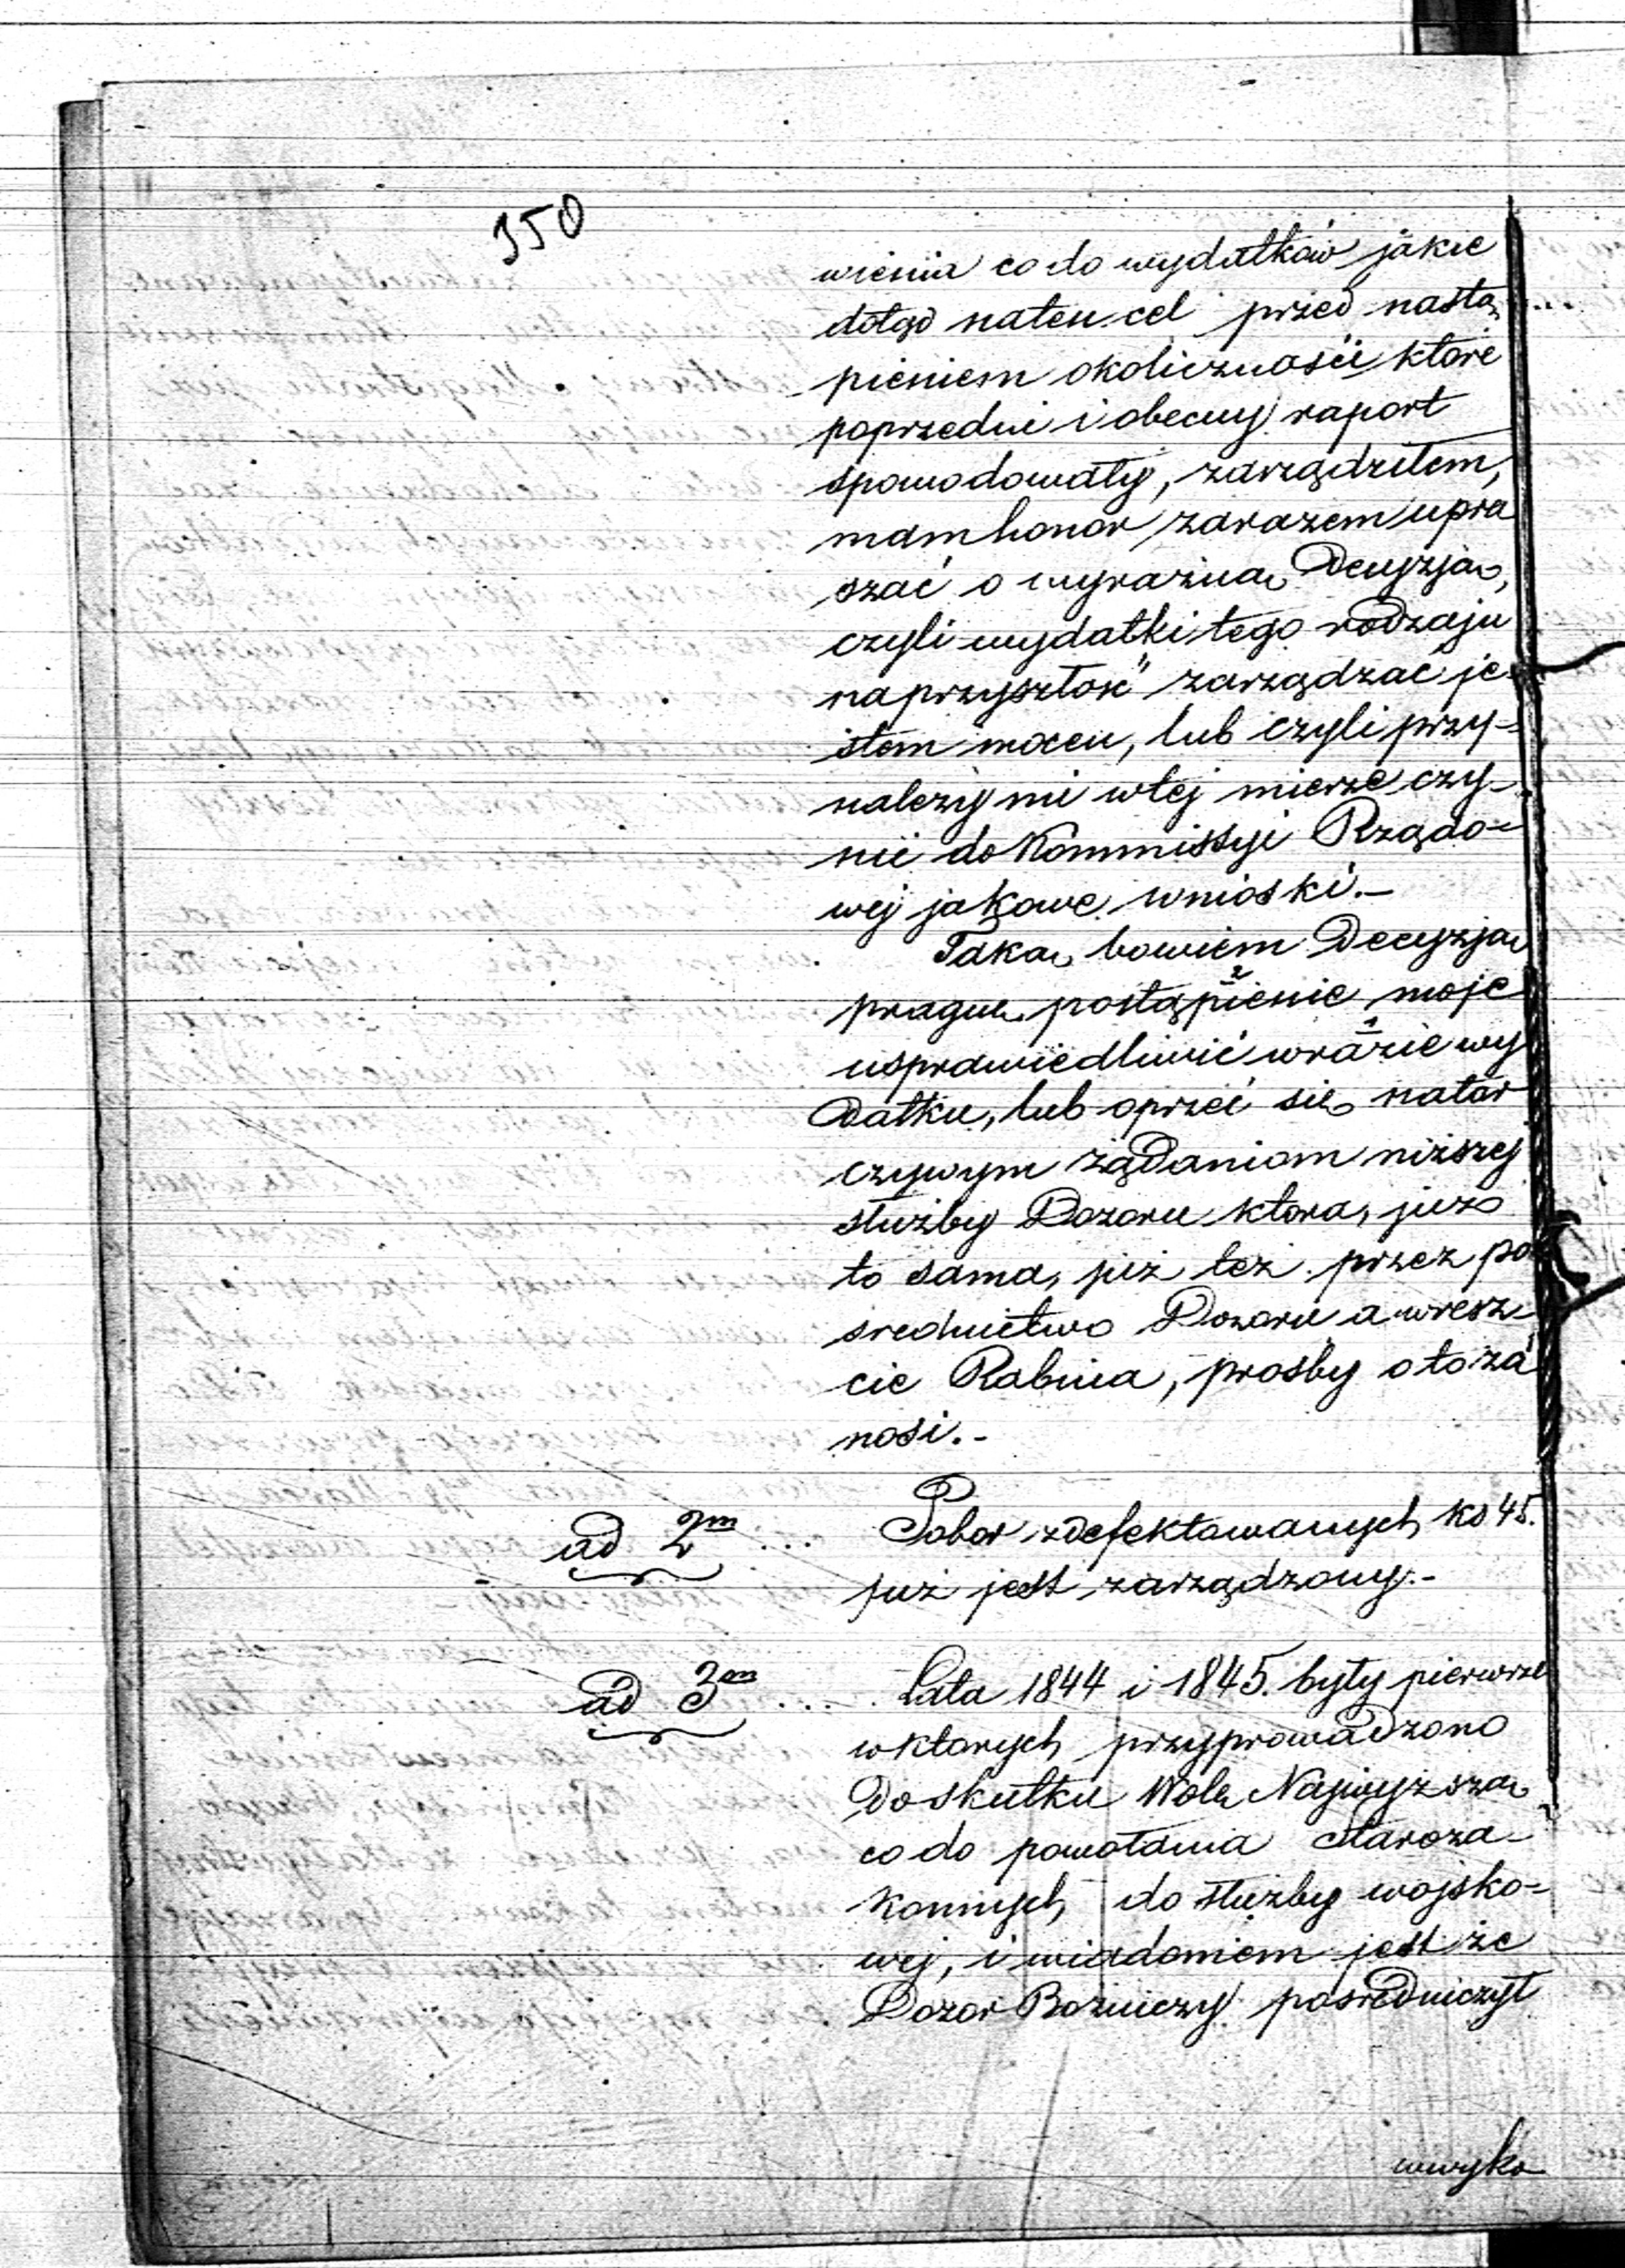 350
wienia co do wydatków jakie
dotąd naten cel przed nastą
pieniem okoliczności które
poprzedni i obecny raport
spowodowały, zarządziłem,
mam honor zarazem upra
szać o wyraźną Decyzją,
czyli wydatki tego rodzaju
naprzyszłość zarządzać je-
stem mocen, lub czyli przy-
należy mi wtej mierze czy-
nić do Kommissyi Rządo-
wej jakowe wnioski.-
Taką bowiem Decyzją
pragnę postąpienie moje
usprawiedliwić wrazie wy
datku, lub oprzeć się natar
czywym żądaniom niższej
służby Dozoru która, już
to sama, już też przez po
srednictwo Dozoru a wresz-
cie Rabina, prośby o to za
nosi.-
ad 2m ... Pobor zdefektowanych ks 45.
już jest zarządzony.-
ad 3m ... Lata 1844 i 1845. były pierwsze
wktorych przyprowadzono
do skutku Wolę Najwyższą
co do powołania Staroza-
konnych do służby wojsko-
wej, i wiadomem jest że
Dozor Bożniczy pośredniczył
wwyko